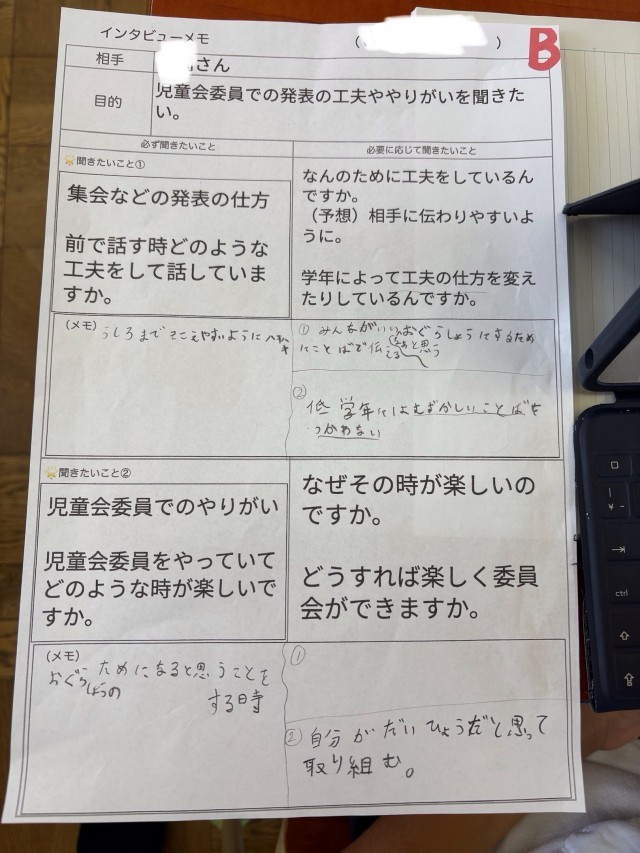 インタビューメモ
（　　）
B
相手
さん
目的
児童会委員での発表の工夫ややりがいを聞きたい。
必ず聞きたいこと
必要に応じて聞きたいこと
聞きたいこと①
集会などの発表の仕方
前で話す時どのような
工夫をして話していま
すか。
なんのために工夫をしているん
ですか。
（予想）相手に伝わりやすいよ
うに。
学年によって工夫の仕方を変え
たりしているんですか。
（メモ）
うしろまできこえやすいように
① みんながいいおぐらしょうにするため
にことばで伝える
なあと思う
②
低学年にはむずかしいことばを
つかわない
聞きたいこと②
児童会委員でのやりがい
児童会委員をやっていて
どのような時が楽しいで
すか。
なぜその時が楽しいの
ですか。
どうすれば楽しく委員
会ができますか。
（メモ）
おぐらしょうの
ためになると思うことを
する時
①
② 自分がだいひょうだと思って
取り組む。
ctrl